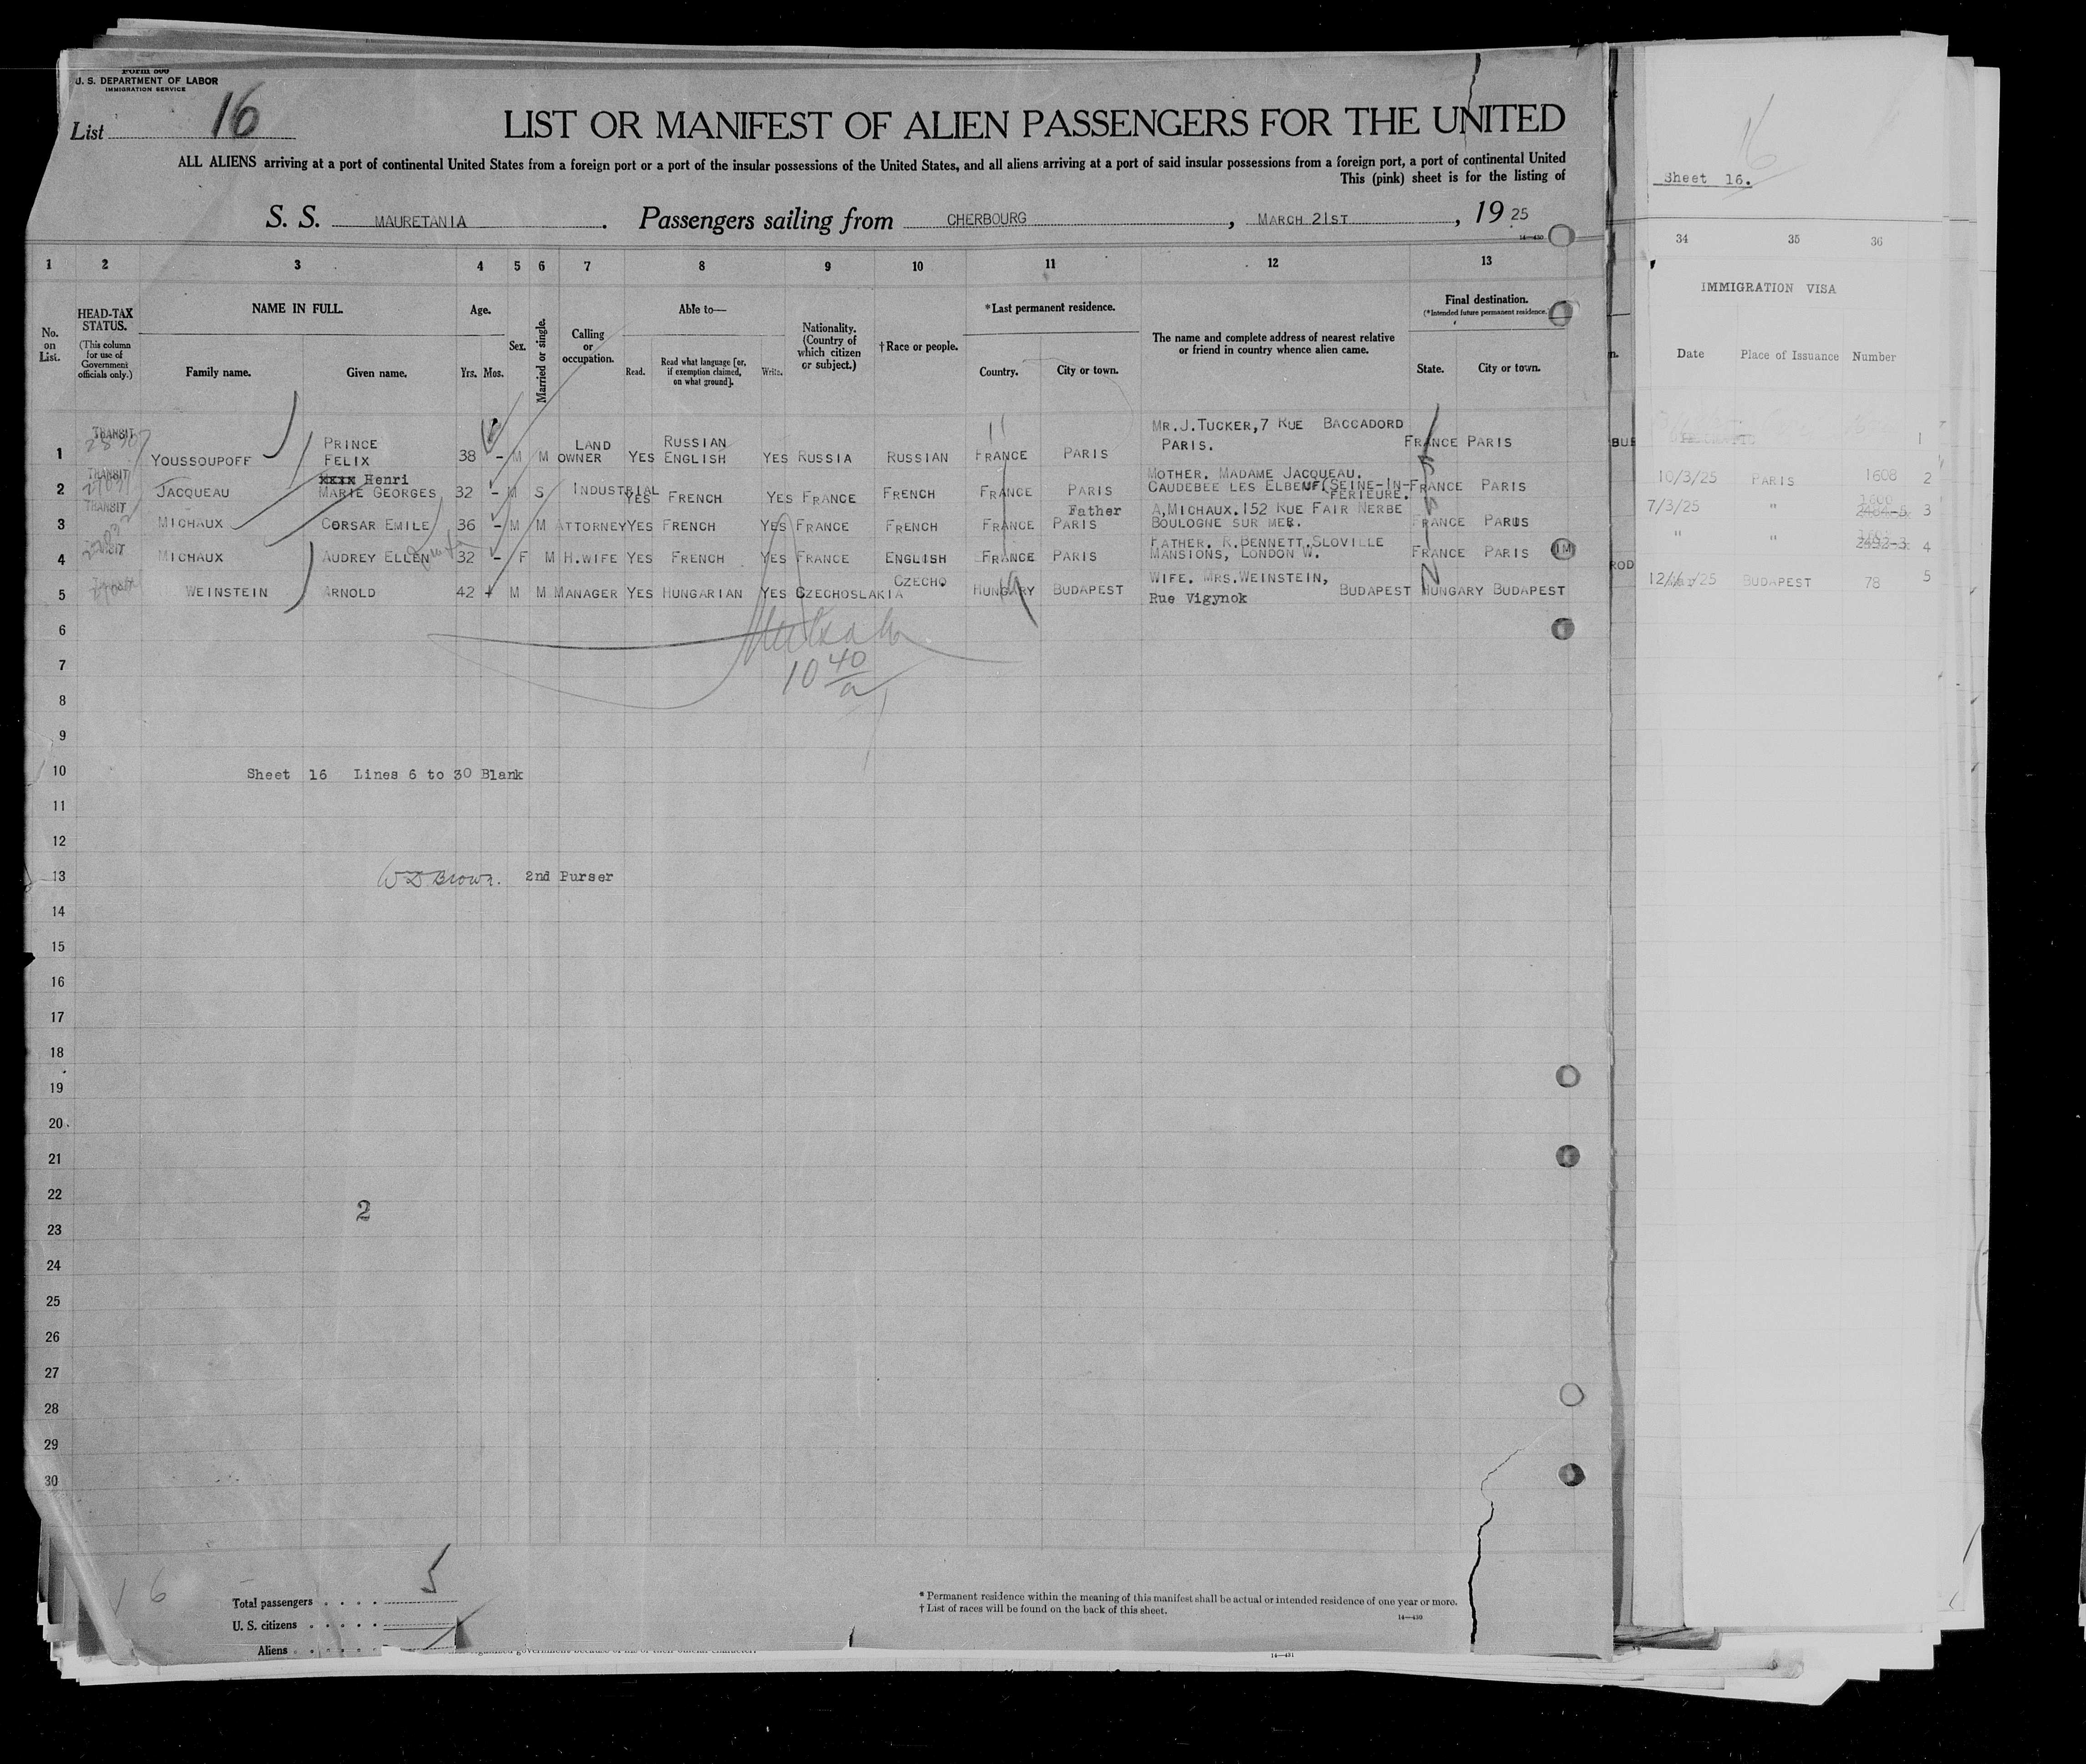 Form 500
U. S. DEPARTMENT OF LABOR
IMMIGRATION SERVICE
List 16
LIST OR MANIFEST OF ALIEN PASSENGERS FOR THE UNITED
ALL ALIENS arriving at a port of continental United States from a foreign port or a port of the insular possessions of the United States, and all aliens arriving at a port of said insular possessions from a foreign port, a port of continental United
This (pink) sheet is for the listing of
S. S. MAURETANIA. Passengers sailing from CHERBOURG, MARCH 21ST, 1925
14—430
1 2 3 4 5 6 7 8 9 10 11 12 13
No. on List.
HEAD-TAX STATUS.
(This column for use of Government officials only.)
NAME IN FULL.
Family name. Given name.
Age.
Yrs. Mos.
Sex.
Married or single.
Calling or occupation.
Able to—
Read. Read what language [or, if exemption claimed, on what ground]. Write.
Nationality. (Country of which citizen or subject.)
†Race or people.
*Last permanent residence.
Country. City or town.
The name and complete address of nearest relative or friend in country whence alien came.
Final destination.
(*Intended future permanent residence.)
State. City or town.
1 TRANSIT YOUSSOUPOFF PRINCE FELIX 38 – M M LAND OWNER YES RUSSIAN ENGLISH YES RUSSIA RUSSIAN FRANCE PARIS MR.J.TUCKER,7 RUE BACCADORD PARIS. FRANCE PARIS
2 TRANSIT JACQUEAU xxxx Henri MARIE GEORGES 32 – M S INDUSTRIAL YES FRENCH YES FRANCE FRENCH FRANCE PARIS MOTHER. MADAME JACQUEAU. CAUDEBEE LES ELBEUF(SEINE-IN-FERIEURE. FRANCE PARIS
3 TRANSIT MICHAUX CORSAR EMILE 36 – M M ATTORNEY YES FRENCH YES FRANCE FRENCH FRANCE PARIS Father A,MICHAUX.152 RUE FAIR NERBE BOULOGNE SUR MER. FRANCE PARIS
4 MICHAUX AUDREY ELLEN 32 – F M H.WIFE YES FRENCH YES FRANCE ENGLISH FRANCE PARIS FATHER. R.BENNETT.SLOVILLE MANSIONS, LONDON W. FRANCE PARIS
5 WEINSTEIN ARNOLD 42 M M MANAGER YES HUNGARIAN YES CZECHOSLAKIA CZECHO HUNGARY BUDAPEST WIFE. MRS.WEINSTEIN, Rue Vigynok BUDAPEST HUNGARY BUDAPEST
6
10 40/a
7
8
9
10 Sheet 16 Lines 6 to 30 Blank
11
12
13 W D Brown. 2nd Purser
14
15
16
17
18
19
20
21
22
2
23
24
25
26
27
28
29
30
16
Total passengers 5
U. S. citizens
Aliens
* Permanent residence within the meaning of this manifest shall be actual or intended residence of one year or more.
† List of races will be found on the back of this sheet.
14—430
14—431
16
Sheet 16.
34 35 36
IMMIGRATION VISA
Date Place of Issuance Number
BUE 1
10/3/25 PARIS 1608 2
7/3/25 " 2484-5 3
" " 2492-3 4
ROD
12/ /25 BUDAPEST 78 5